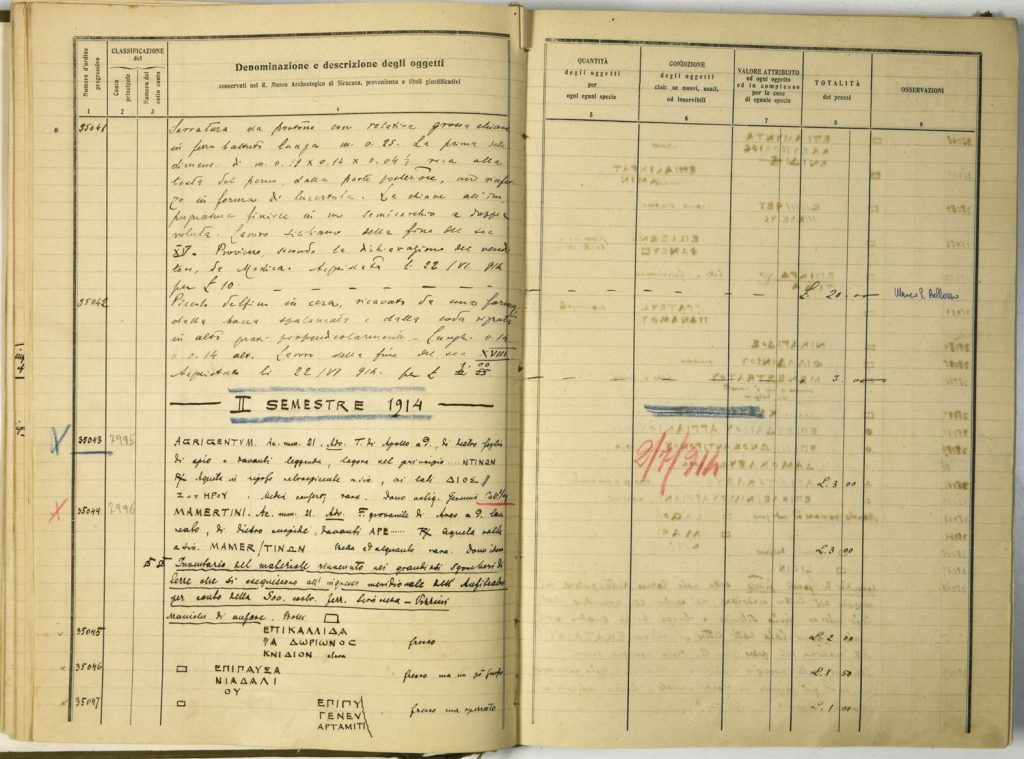 Numero d'ordine progressivo
CLASSIFICAZIONE
del
Conto principale
Numero del sotto conto
Denominazione e descrizione degli oggetti
conservati nel R. Museo Archeologico di Siracusa, provenienza e titoli giustificativi
1 2 3 4
35041 Serratura da portone con relativa grossa chiave
in ferro battuto lunga m. 0.25. La prima
dimens. di m. 0.19 x 0.14 x 0.04½ reca alla
testa del perno, dalla parte posteriore, un
in forma di lucertola. La chiave all'im
pugnatura finisce in un semicerchio a doppia
voluta. Lavoro siciliano della fine del sec
XV. Proviene, secondo la dichiarazione del vendi
tore, da Modica. Acquistata li 22/VI. 914
per £ 10
35042 Piccolo delfino in cera, ricavato da una forma
dalla bocca spalancata e dalla coda
in alto quasi perpendicolarmente. Lungh. 0.14
x 0.14 alt. Lavoro della fine del sec XVIII
Acquistato li 22/VI 914. per £
II SEMESTRE 1914
35043 7995 AGRIGENTVM. Ae. mm. 21. Adv. T. di Apollo a d., di dietro foglia
di apio e davanti leggenda, logora nel principio ΝΤΙΝΩΝ
R Aquila in riposo retrospiciente a sin., ai lati ΔΙΟΣ //
ΣΩΤΗΡΟΥ. Medio conserv., rara. Dono
35044 7996 MAMERTINI. Ae. mm. 21. Adv. T. giovanile di Ares a d. lau
reato, di dietro cuspide, davanti ΑΡΕ..... R aquila
a sin. ΜΑΜΕΡ/ΤΙΝΩΝ alquanto rara. Dono idem
Inventario del materiale rinvenuto nei grandiosi sgomberi di
terre che si eseguiscono all'ingresso meridionale dell'Anfiteatro
per conto della Soc. costr. ferr. Siracusa - Vizzini
Manichi di anfore. Bolli
35045 ΕΠΙΚΑΛΛΙΔΑ
ΔΩΡΙΩΝΟΣ fresco
ΚΝΙΔΙΟΝ
35046 ΕΠΙΠΑΥΣΑ fresco ma un po'
ΝΙΑΔΑΛΙ
ΟΥ
35047 ΕΠΙΠΥ
ΓΕΝΕΥ fresco ma
ΑΡΤΑΜΙΤΙ
QUANTITÀ
degli oggetti
per
ogni eguni specie
CONDIZIONE
degli oggetti
cioè: se nuovi, usati,
od inservibili
VALORE ATTRIBUITO
ad ogni oggetto
ed in complesso
per le cose
di eguale specie
TOTALITÀ
dei prezzi
OSSERVAZIONI
5 6 7 8 9
£ 20
3
2/7/914
L. 3 00
L. 3 00
L. 2 00
L. 1 50
L. 1 00